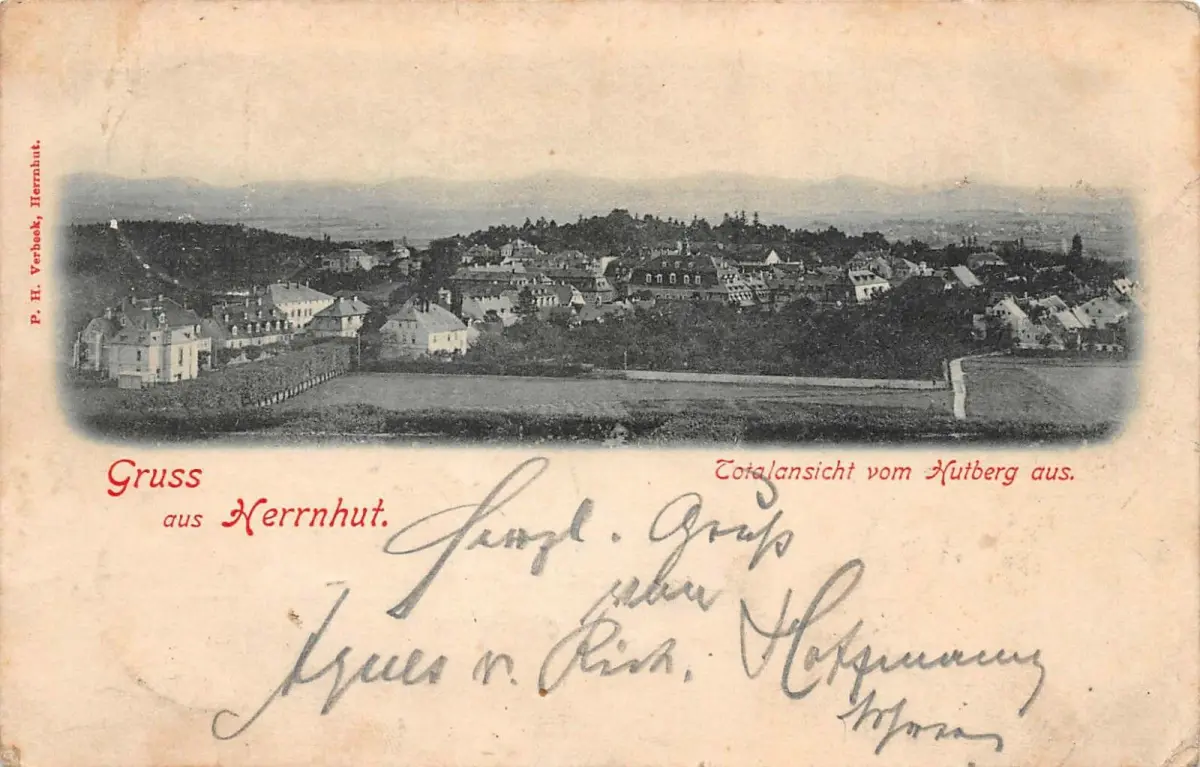 P. H. Verbeek, Herrnhut.
Gruss
aus Herrnhut.
Totalansicht vom Hutberg aus.
Herzl. Gruß
von
Agnes v. Rich. Hoffmann